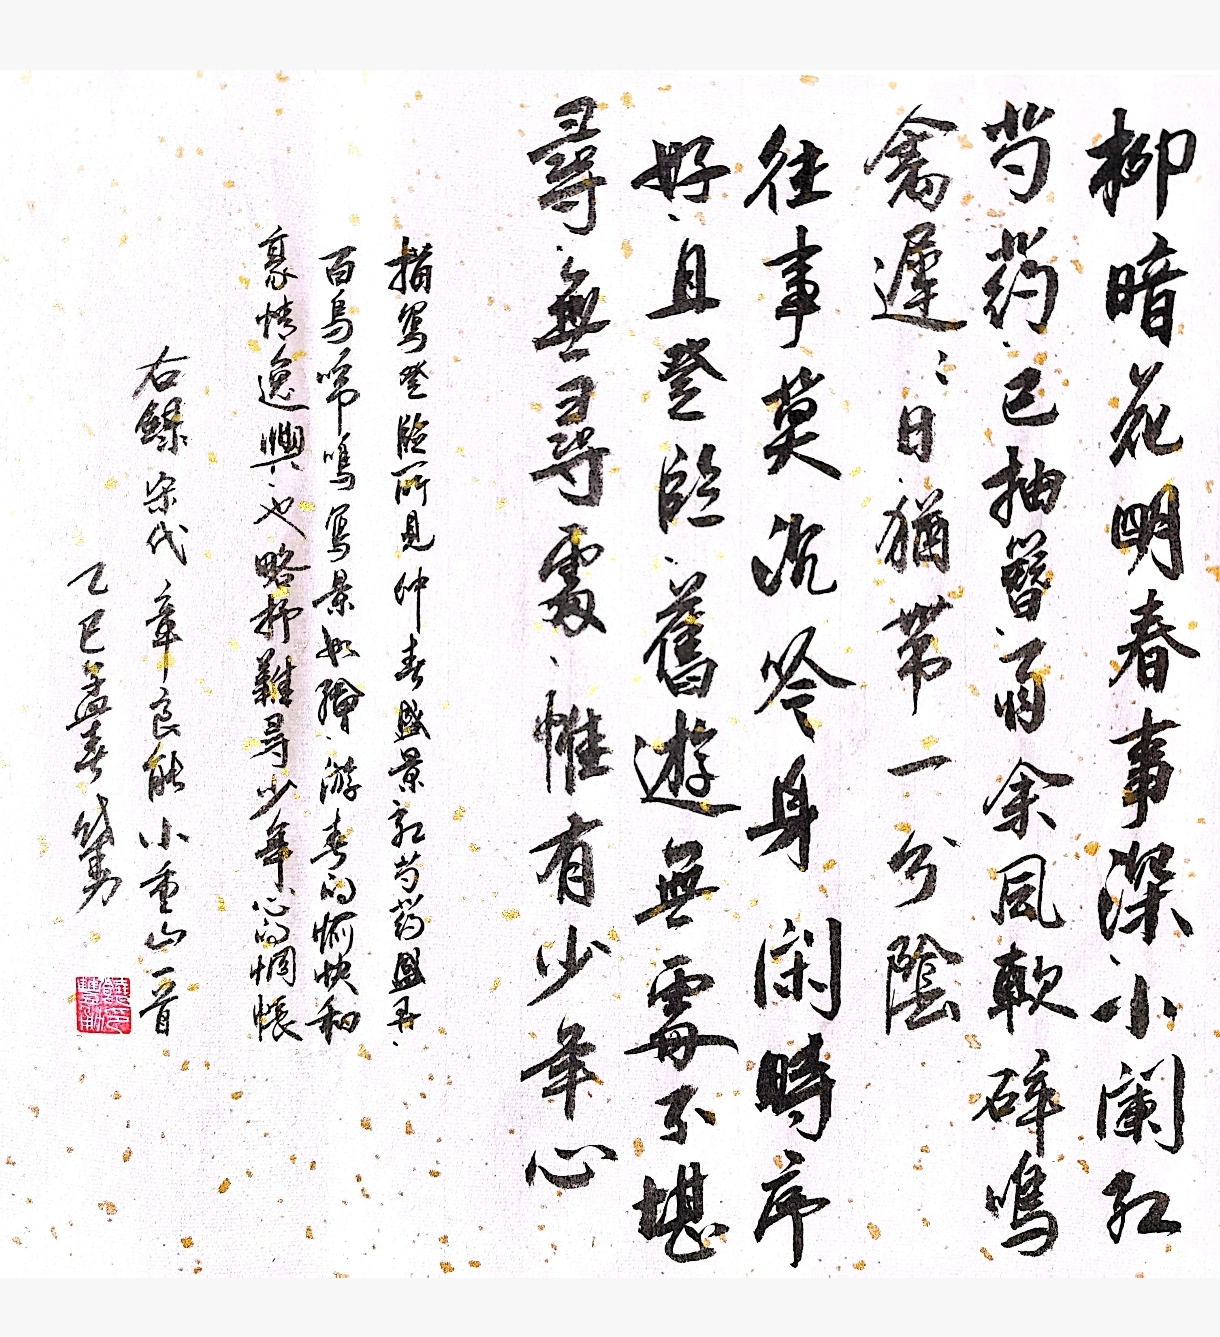 柳暗花明春事深小闌红
芍药已抽簪雨余風軟碎鳴
禽遲遲日猶带一分陰
往事莫沉吟身闲時序
好且登臨舊遊無處不堪
尋無尋處惟有少年心
描寫登臨所見仲春盛景红芍药盛开
百鸟啼鳴寫景如繪游春的愉快和
豪情逸興也略抒難尋少年心的惆悵
右録宋代章良能小重山一首
乙巳孟春